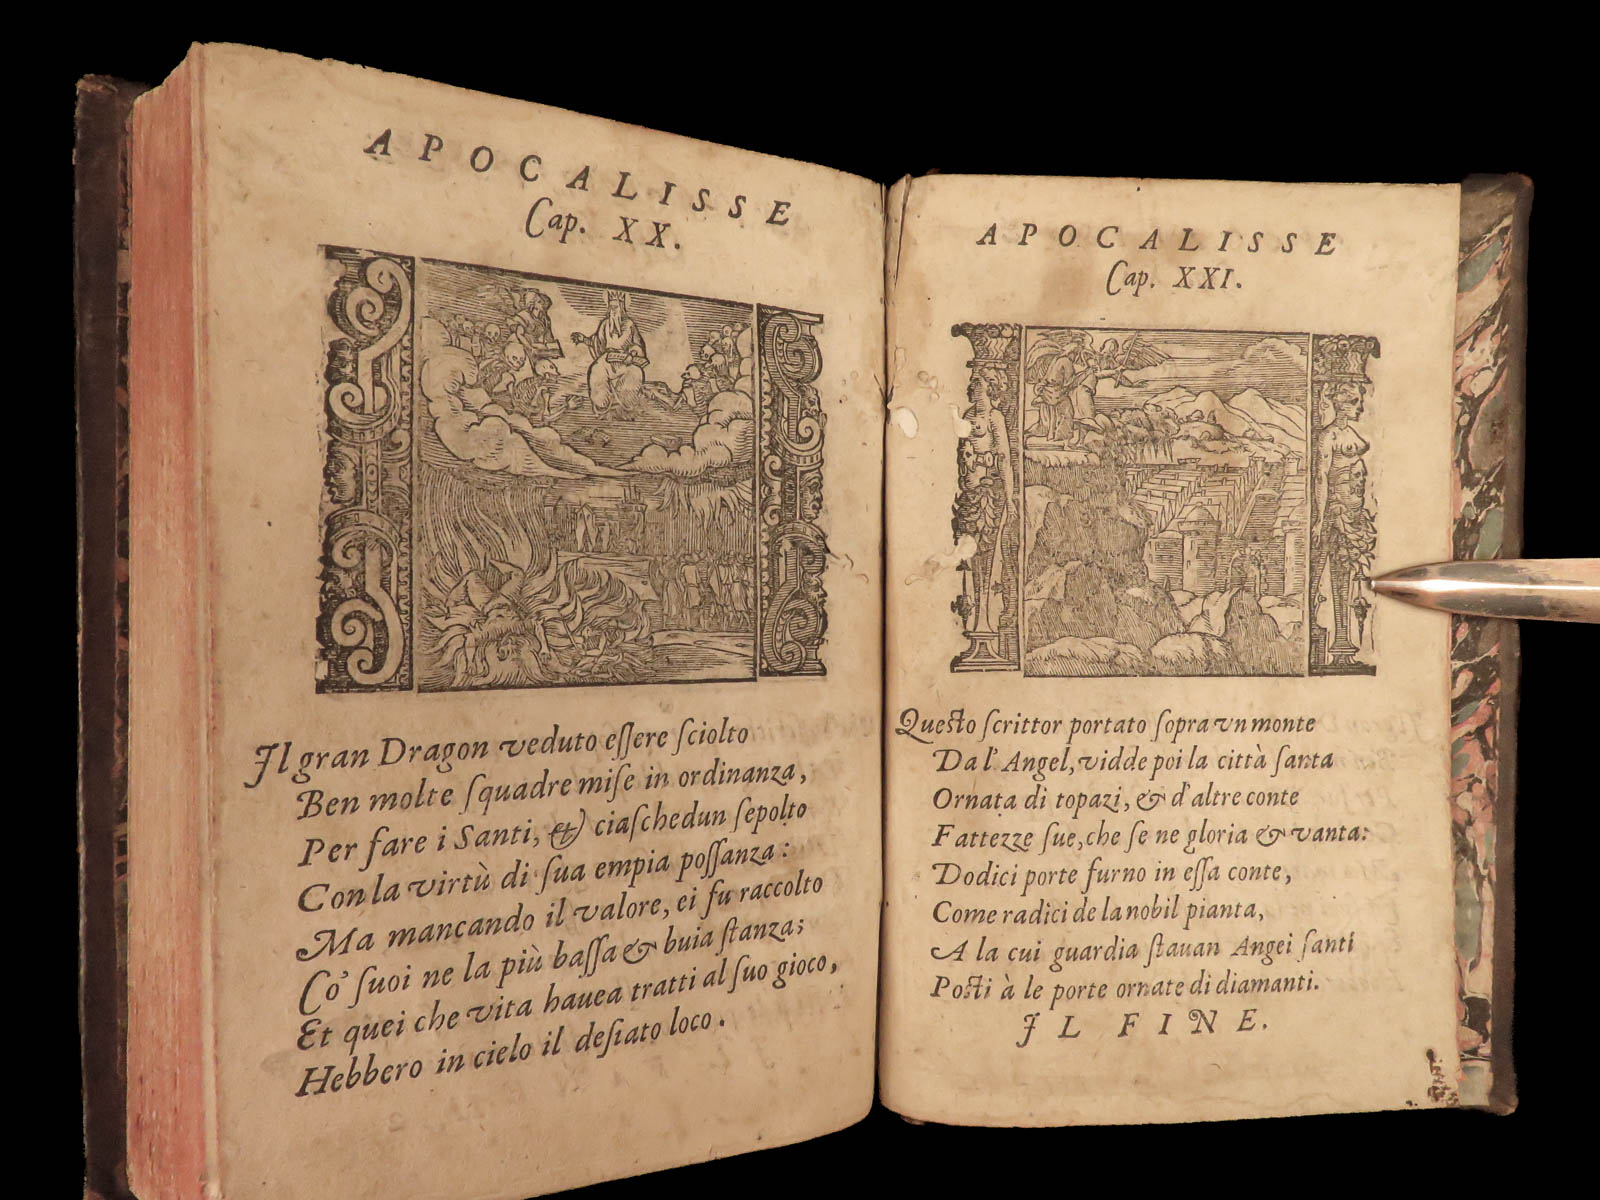 APOCALISSE
Cap. XX.
Il gran Dragon veduto eſſere ſciolto
Ben molte ſquadre miſe in ordinanza,
Per fare i Santi, & ciaſchedun ſepolto
Con la virtù di ſua empia poſſanza:
Ma mancando il valore, ei fu raccolto
Co' ſuoi ne la più baſſa & buia ſtanza;
Et quei che vita hauea tratti al ſuo gioco,
Hebbero in cielo il deſiato loco.
APOCALISSE
Cap. XXI.
Queſto ſcrittor portato ſopra vn monte
Da l' Angel, vidde poi la città ſanta
Ornata di topazi, & d'altre conte
Fattezze ſue, che ſe ne gloria & vanta:
Dodici porte furno in eſſa conte,
Come radici de la nobil pianta,
A la cui guardia ſtauan Angei ſanti
Poſti à le porte ornate di diamanti.
IL FINE.